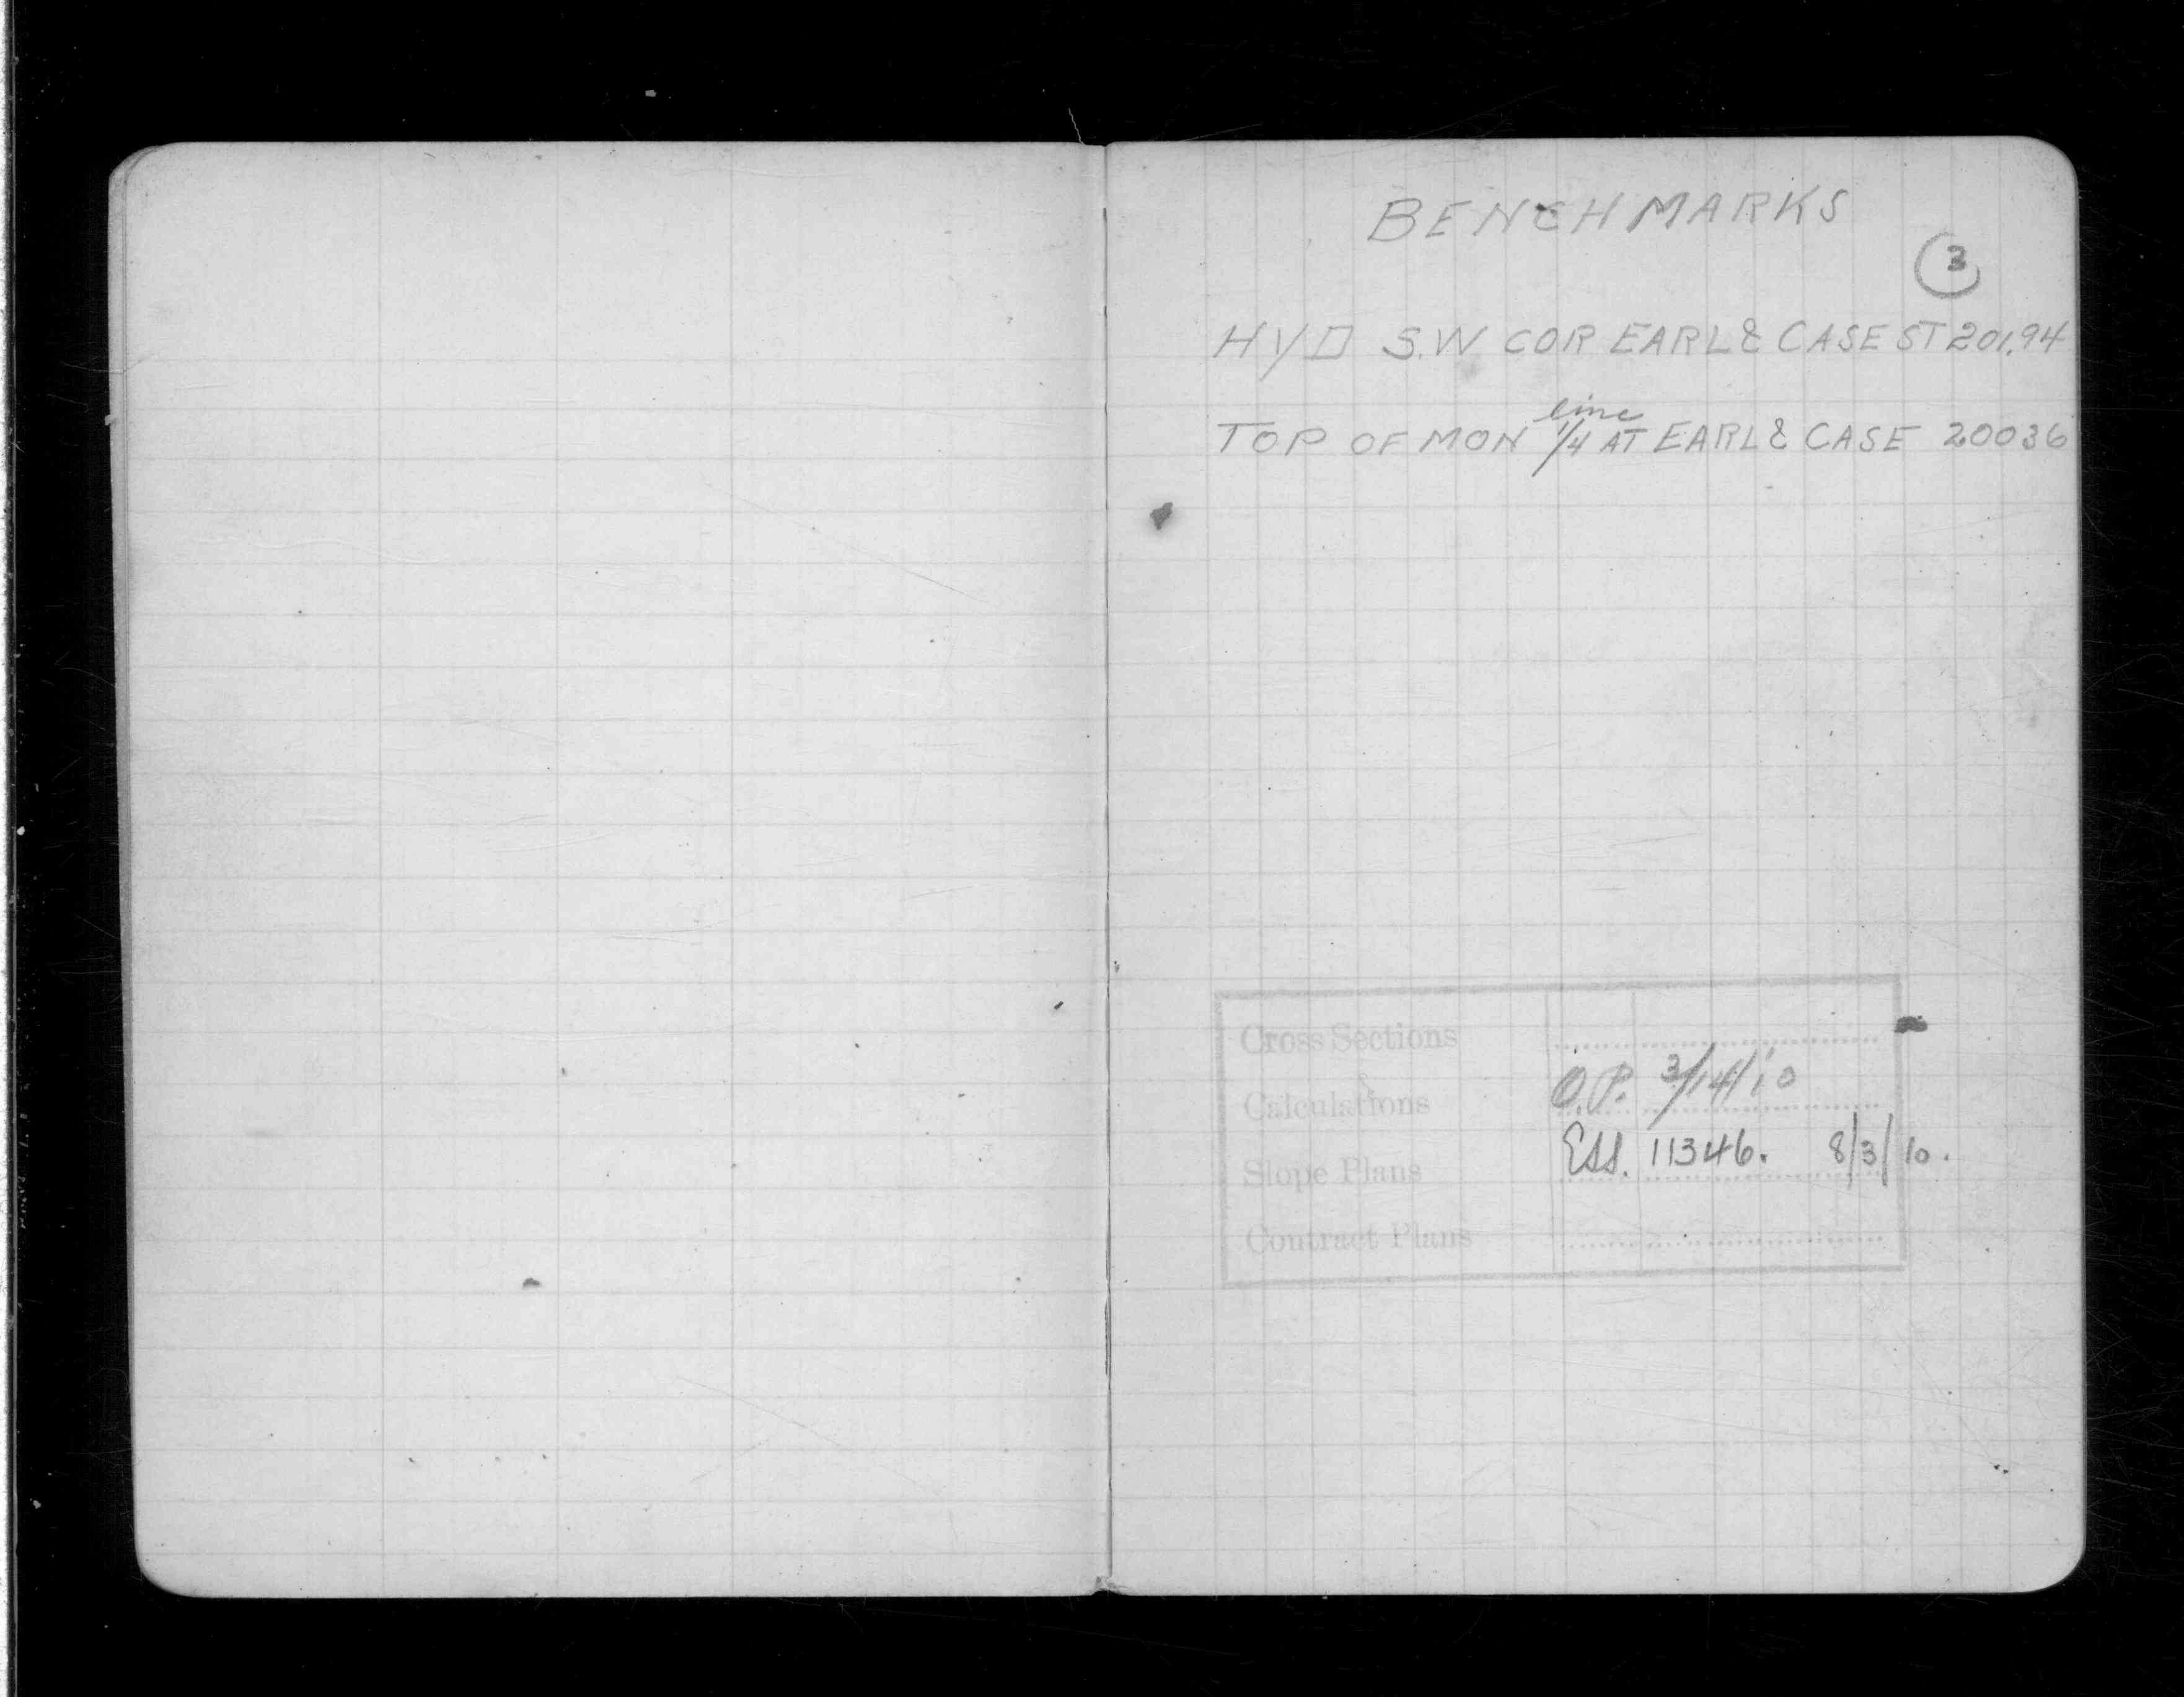 BENCHMARKS
3
HYD S.W COR EARL & CASE ST 201.94
line
TOP OF MON 1/4 AT EARL & CASE 20036
Cross Sections
Calculations O.P. 3/14/10
Slope Plans ESS. 11346. 8/3/10.
Contract Plans